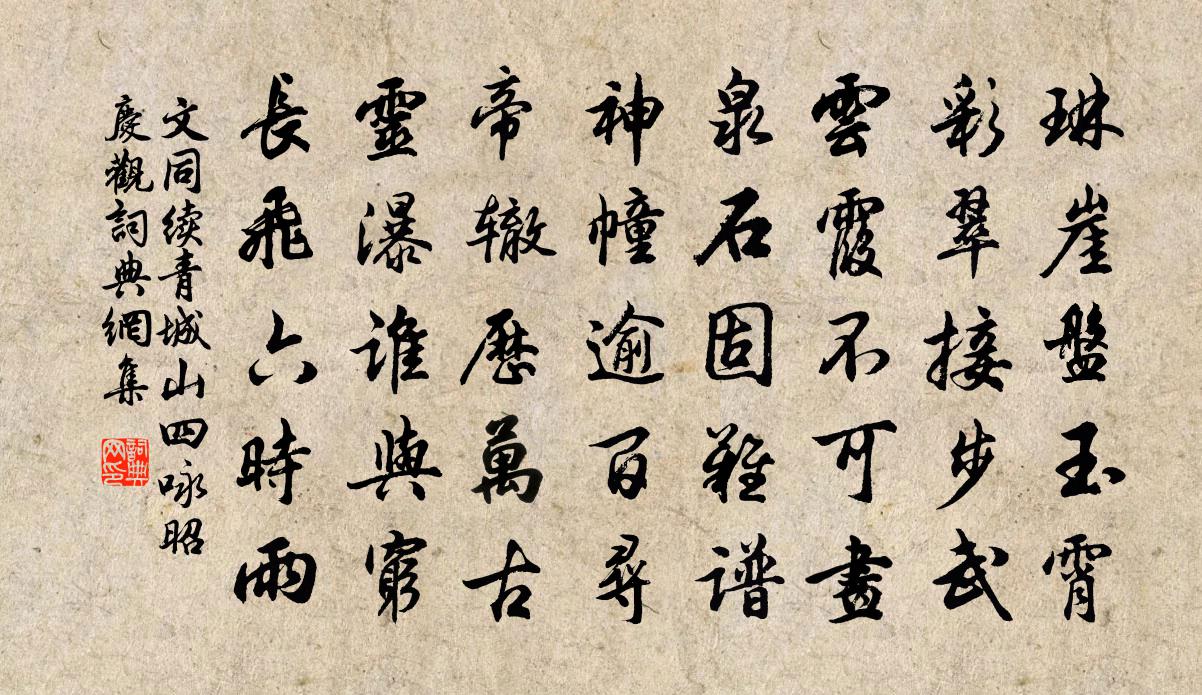 琳崖盤玉霄
彩翠接步武
雲霞不可畫
泉石固難譜
神幢逾百尋
帝辙歷萬古
靈瀑誰與窮
長飛六時雨
文同续青城山四咏昭
慶觀詞典網集
詞典网印